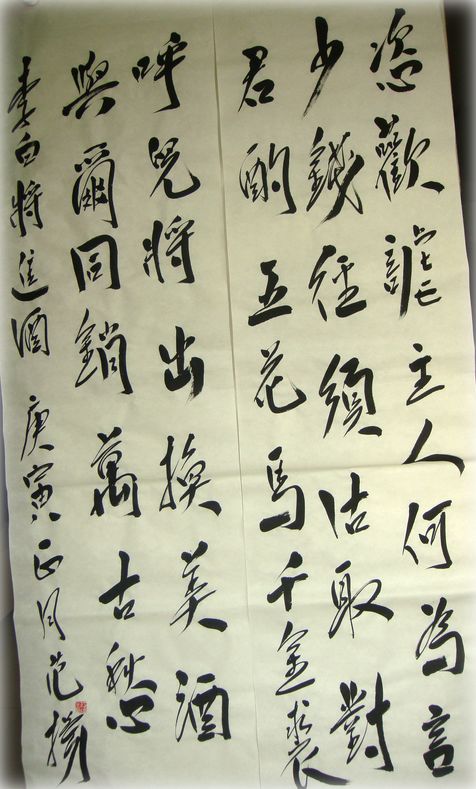 恣歡謔主人何為言
少錢徑須沽取對
君酌五花馬千金裘
呼兒將出換美酒
與爾同銷萬古愁
李白將進酒 庚寅正月范揚